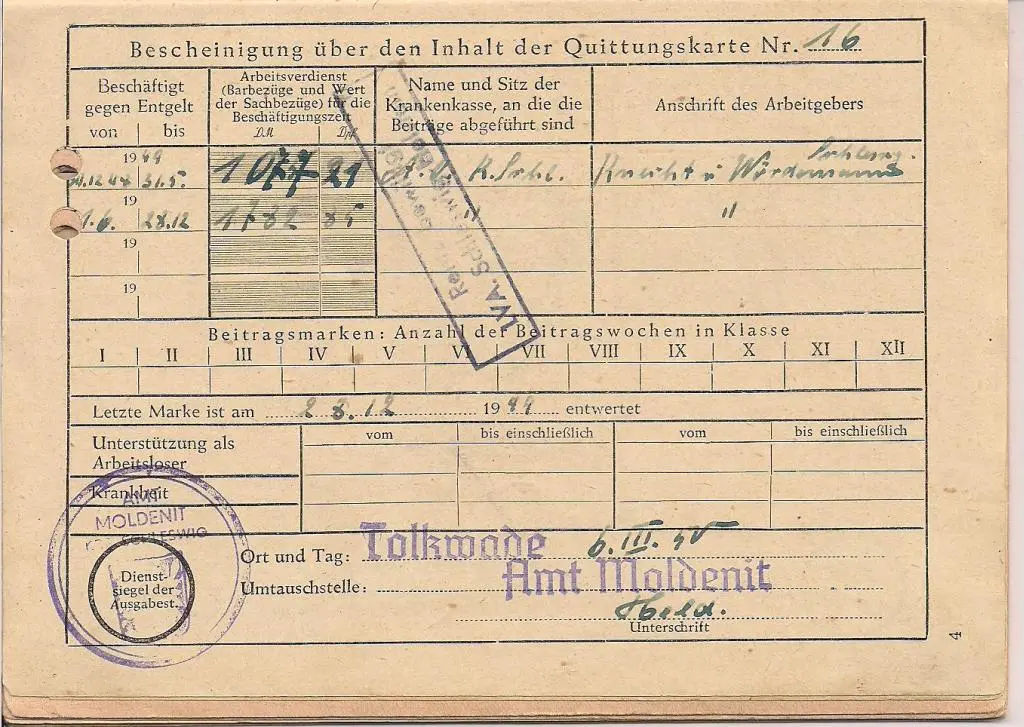 Bescheinigung über den Inhalt der Quittungskarte Nr. 16
Beschäftigt
gegen Entgelt
von | bis
Arbeitsverdienst
(Barbezüge und Wert
der Sachbezüge) für die
Beschäftigungszeit
DM Dpf
Name und Sitz der
Krankenkasse, an die die
Beiträge abgeführt sind
Anschrift des Arbeitgebers
1949
31.5. 1077 21 K. Schl. Knecht u Wördemann
19
1.6. 28.12 1782 85 " "
19
19
LVA. Schleswig
Beitragsmarken: Anzahl der Beitragswochen in Klasse
I | II | III | IV | V | VI | VII | VIII | IX | X | XI | XII
Letzte Marke ist am 28.12 1949 entwertet
Unterstützung als
Arbeitsloser
vom bis einschließlich vom bis einschließlich
Krankheit
AMT
MOLDENIT
SCHLESWIG
Dienst-
siegel der
Ausgabest.
Ort und Tag: Tolkwade 6.III.50
Umtauschstelle: Amt Moldenit
Held.
Unterschrift
4